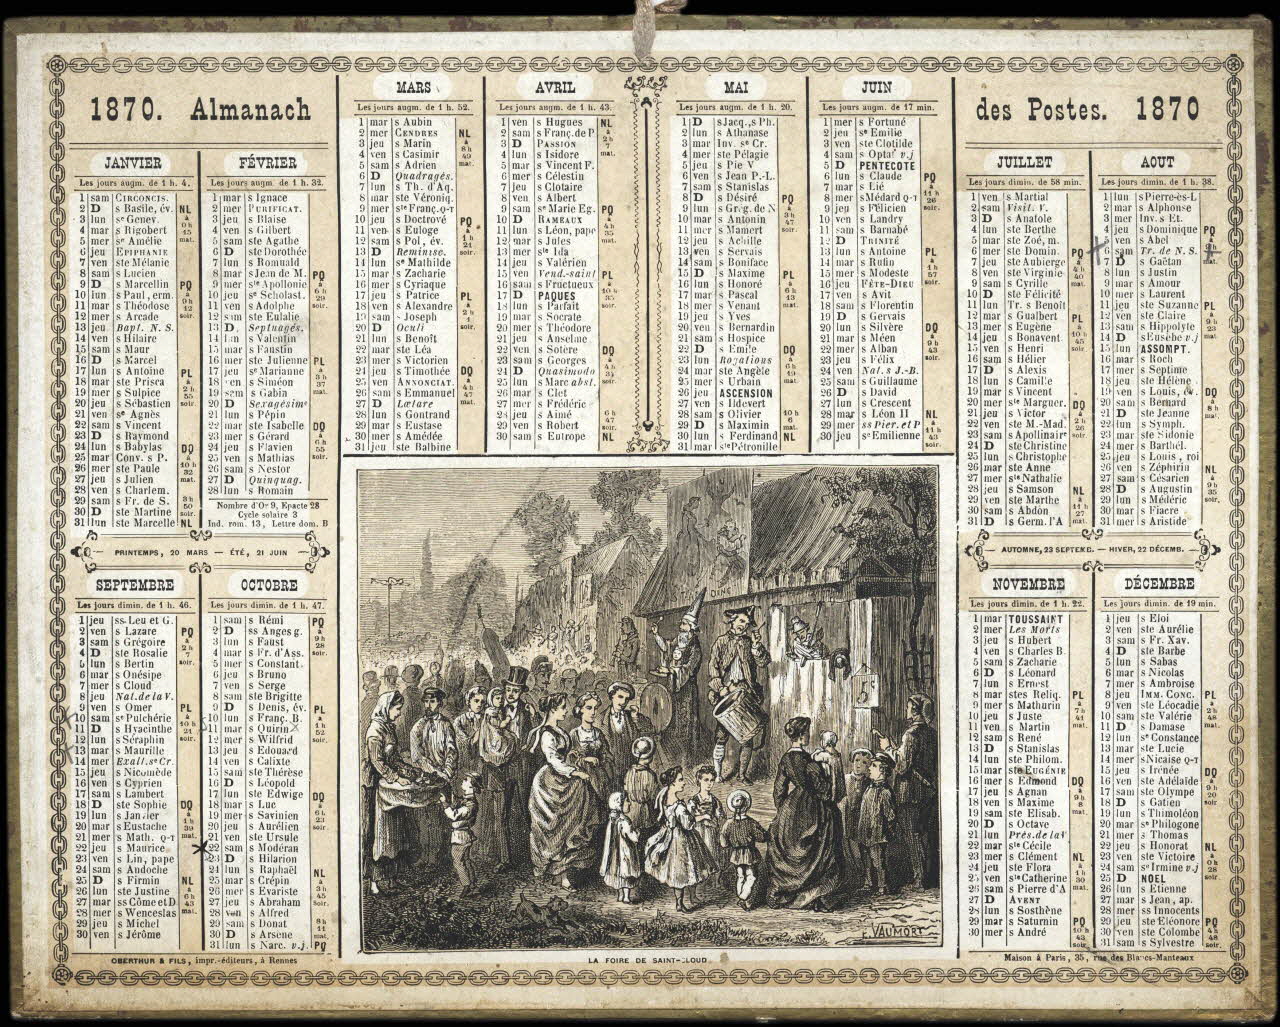 1870. Almanach
des Postes. 1870
JANVIER
Les jours augm. de 1 h. 4.
1 sam CIRCONCIS.
2 D s Basile, év.
3 lun ste Genev.
4 mar s Rigobert
5 mer ste Amélie
6 jeu EPIPHANIE
7 ven ste Mélanie
8 sam s Lucien
9 D s Marcellin
10 lun s Paul, erm.
11 mar s Théodose
12 mer s Arcade
13 jeu Bapt. N. S.
14 ven s Hilaire
15 sam s Maur
16 D s Marcel
17 lun s Antoine
18 mar ste Prisca
19 mer s Sulpice
20 jeu s Sébastien
21 ven ste Agnès
22 sam s Vincent
23 D s Raymond
24 lun s Babylas
25 mar Conv. s P.
26 mer ste Paule
27 jeu s Julien
28 ven s Charlem.
29 sam s Fr. de S.
30 D ste Martine
31 lun ste Marcelle
NL à 0 h 15 mat.
PQ à 9 h 12 soir.
PL à 2 h 55 soir.
DQ à 10 h 32 mat.
3 h 50 soir.
NL
FÉVRIER
Les jours augm. de 1 h. 32.
1 mar s Ignace
2 mer PURIFICAT.
3 jeu s Blaise
4 ven s Gilbert
5 sam ste Agathe
6 D ste Dorothée
7 lun s Romuald
8 mar s Jean de M.
9 mer ste Apollonie
10 jeu ste Scholast.
11 ven s Adolphe
12 sam ste Eulalie
13 D Septuagés.
14 lun s Valentin
15 mar s Faustin
16 mer ste Julienne
17 jeu ste Marianne
18 ven s Siméon
19 sam s Gabin
20 D Sexagésime
21 lun s Pépin
22 mar ste Isabelle
23 mer s Gérard
24 jeu s Flavien
25 ven s Mathias
26 sam s Nestor
27 D Quinquag.
28 lun s Romain
PQ à 6 h 29 soir.
PL à 3 h 37 mat.
DQ à 6 h 55 soir.
Nombre d'Or 9, Epacte 28
Cycle solaire 3
Ind. rom. 13, Lettre dom. B
MARS
Les jours augm. de 1 h. 52.
1 mar s Aubin
2 mer CENDRES
3 jeu s Marin
4 ven s Casimir
5 sam s Adrien
6 D Quadragés.
7 lun s Th. d'Aq.
8 mar ste Véroniq.
9 mer ste Franç. Q-T
10 jeu s Doctrové
11 ven s Euloge
12 sam s Pol, év.
13 D Reminisc.
14 lun ste Mathilde
15 mar s Zacharie
16 mer s Cyriaque
17 jeu s Patrice
18 ven s Alexandre
19 sam s Joseph
20 D Oculi
21 lun s Benoît
22 mar ste Léa
23 mer s Victorien
24 jeu s Timothée
25 ven ANNONCIAT.
26 sam s Emmanuel
27 D Lætare
28 lun s Gontrand
29 mar s Eustase
30 mer s Amédée
31 jeu ste Balbine
NL à 8 h 49 mat.
PQ à 1 h 24 soir.
PL à 2 h 1 soir.
DQ à 4 h 47 mat.
AVRIL
Les jours augm. de 1 h. 43.
1 ven s Hugues
2 sam s Franç. de P
3 D PASSION
4 lun s Isidore
5 mar s Vincent F.
6 mer s Célestin
7 jeu s Clotaire
8 ven s Albert
9 sam ste Marie Eg.
10 D RAMEAUX
11 lun s Léon, pape
12 mar s Jules
13 mer ste Ida
14 jeu s Valérien
15 ven Vend.-saint
16 sam s Fructueux
17 D PAQUES
18 lun s Parfait
19 mar s Socrate
20 mer s Théodore
21 jeu s Anselme
22 ven s Sotère
23 sam s Georges
24 D Quasimodo
25 lun s Marc abst.
26 mar s Clet
27 mer s Frédéric
28 jeu s Aimé
29 ven s Robert
30 sam s Eutrope
NL à 2 h 7 mat.
PQ à 4 h 35 mat.
PL à 10 h 35 soir.
DQ à 4 h 3 soir.
6 h 47 soir.
NL
MAI
Les jours augm. de 1 h. 20.
1 D s Jacq., s Ph.
2 lun s Athanase
3 mar Inv. ste Cr.
4 mer ste Pélagie
5 jeu s Pie V
6 ven s Jean P.-L.
7 sam s Stanislas
8 D s Désiré
9 lun s Grég. de N
10 mar s Antonin
11 mer s Mamert
12 jeu s Achille
13 ven s Servais
14 sam s Boniface
15 D s Maxime
16 lun s Honoré
17 mar s Pascal
18 mer s Venant
19 jeu s Yves
20 ven s Bernardin
21 sam s Hospice
22 D s Emile
23 lun Rogations
24 mar ste Angèle
25 mer s Urbain
26 jeu ASCENSION
27 ven s Ildevert
28 sam s Olivier
29 D s Maximin
30 lun s Ferdinand
31 mar ste Pétronille
PQ à 3 h 47 soir.
PL à 6 h 13 mat.
DQ à 6 h 19 mat.
10 h 6 mat.
NL
JUIN
Les jours augm. de 17 min.
1 mer s Fortuné
2 jeu ste Emilie
3 ven ste Clotilde
4 sam s Optat v.j
5 D PENTECOTE
6 lun s Claude
7 mar s Lié
8 mer s Médard Q-T
9 jeu s Félicien
10 ven s Landry
11 sam s Barnabé
12 D TRINITÉ
13 lun s Antoine
14 mar s Rufin
15 mer s Modeste
16 jeu FÊTE-DIEU
17 ven s Avit
18 sam s Florentin
19 D s Gervais
20 lun s Silvère
21 mar s Méen
22 mer s Alban
23 jeu s Félix
24 ven Nat. s J.-B.
25 sam s Guillaume
26 D s David
27 lun s Crescent
28 mar s Léon II
29 mer ss Pier. et P
30 jeu ste Emilienne
PQ à 11 h 26 soir.
PL à 1 h 57 soir.
DQ à 9 h 43 soir.
NL à 11 h 43 soir.
JUILLET
Les jours dimin. de 58 min.
1 ven s Martial
2 sam Visit. V.
3 D s Anatole
4 lun ste Berthe
5 mar ste Zoé, m.
6 mer ste Domin.
7 jeu ste Aubierge
8 ven ste Virginie
9 sam s Cyrille
10 D ste Félicité
11 lun Tr. s Benoît
12 mar s Gualbert
13 mer s Eugène
14 jeu s Bonavent.
15 ven s Henri
16 sam s Hélier
17 D s Alexis
18 lun s Camille
19 mar s Vincent
20 mer ste Marguer.
21 jeu s Victor
22 ven ste M.-Mad.
23 sam s Apollinaire
24 D ste Christine
25 lun s Christophe
26 mar ste Anne
27 mer ste Nathalie
28 jeu s Samson
29 ven ste Marthe
30 sam s Abdon
31 D s Germ. l'A
PQ à 4 h 40 mat.
PL à 10 h 45 soir.
DQ à 2 h 26 soir.
NL à 11 h 27 mat.
AOUT
Les jours dimin. de 1 h. 38.
1 lun s Pierre-ès-L
2 mar s Alphonse
3 mer Inv. s Et.
4 jeu s Dominique
5 ven s Abel
6 sam Tr. de N. S.
7 D s Gaëtan
8 lun s Justin
9 mar s Amour
10 mer s Laurent
11 jeu ste Suzanne
12 ven ste Claire
13 sam s Hippolyte
14 D s Eusèbe v.j
15 lun ASSOMPT.
16 mar s Roch
17 mer s Septime
18 jeu ste Hélène
19 ven s Louis, év.
20 sam s Bernard
21 D ste Jeanne
22 lun s Symph.
23 mar ste Sidonie
24 mer s Barthél.
25 jeu s Louis, roi
26 ven s Zéphirin
27 sam s Césarien
28 D s Augustin
29 lun s Médéric
30 mar s Fiacre
31 mer s Aristide
PQ
PL à 9 h 23 mat.
DQ à 8 h mat.
NL à 9 h 35 soir.
PRINTEMPS, 20 MARS — ÉTÉ, 21 JUIN
AUTOMNE, 23 SEPTEMB. — HIVER, 22 DÉCEMB.
SEPTEMBRE
Les jours dimin. de 1 h. 46.
1 jeu ss Leu et G.
2 ven s Lazare
3 sam s Grégoire
4 D ste Rosalie
5 lun s Bertin
6 mar s Onésipe
7 mer s Cloud
8 jeu Nat. de la V.
9 ven s Omer
10 sam ste Pulchérie
11 D s Hyacinthe
12 lun s Séraphin
13 mar s Maurille
14 mer Exalt. ste Cr.
15 jeu s Nicomède
16 ven s Cyprien
17 sam s Lambert
18 D ste Sophie
19 lun s Janvier
20 mar s Eustache
21 mer s Math. Q-T
22 jeu s Maurice
23 ven s Lin, pape
24 sam s Andoche
25 D s Firmin
26 lun ste Justine
27 mar ss Côme et D
28 mer s Wenceslas
29 jeu s Michel
30 ven s Jérôme
PQ à 2 h 7 soir.
PL à 10 h 21 soir.
DQ à 1 h 39 mat.
NL à 6 h 43 mat.
OCTOBRE
Les jours dimin. de 1 h. 47.
1 sam s Rémi
2 D ss Anges g.
3 lun s Faust
4 mar s Fr. d'Ass.
5 mer s Constant
6 jeu s Bruno
7 ven s Serge
8 sam ste Brigitte
9 D s Denis, év.
10 lun s Franç. B.
11 mar s Quirin
12 mer s Wilfrid
13 jeu s Edouard
14 ven s Calixte
15 sam ste Thérèse
16 D s Léopold
17 lun ste Edwige
18 mar s Luc
19 mer s Savinien
20 jeu s Aurélien
21 ven ste Ursule
22 sam s Modéran
23 D s Hilarion
24 lun s Raphaël
25 mar s Crépin
26 mer s Evariste
27 jeu s Abraham
28 ven s Alfred
29 sam s Donat
30 D s Arsene
31 lun s Narc. v.j.
PQ à 9 h 28 soir.
PL à 1 h 52 soir.
DQ à 6 h 23 soir.
NL à 3 h 45 soir.
8 h 11 mat.
PQ
NOVEMBRE
Les jours dimin. de 1 h. 22.
1 mar TOUSSAINT
2 mer Les Morts
3 jeu s Hubert
4 ven s Charles B.
5 sam s Zacharie
6 D s Léonard
7 lun s Ernest
8 mar stes Reliq.
9 mer s Mathurin
10 jeu s Juste
11 ven s Martin
12 sam s René
13 D s Stanislas
14 lun ste Philom.
15 mar ste EUGÉNIE
16 mer s Edmond
17 jeu s Agnan
18 ven s Maxime
19 sam ste Elisab.
20 D s Octave
21 lun Prés. de la V
22 mar ste Cécile
23 mer s Clément
24 jeu ste Flora
25 ven ste Catherine
26 sam s Pierre d'A
27 D AVENT
28 lun s Sosthène
29 mar s Saturnin
30 mer s André
PL à 7 h 41 mat.
DQ à 9 h 8 mat.
NL à 1 h 30 mat.
PQ à 10 h 43 soir.
DÉCEMBRE
Les jours dimin. de 19 min.
1 jeu s Eloi
2 ven ste Aurélie
3 sam s Fr. Xav.
4 D ste Barbe
5 lun s Sabas
6 mar s Nicolas
7 mer s Ambroise
8 jeu IMM. CONC.
9 ven ste Léocadie
10 sam ste Valérie
11 D s Damase
12 lun ste Constance
13 mar ste Lucie
14 mer s Nicaise Q-T
15 jeu s Irénée
16 ven ste Adélaïde
17 sam ste Olympe
18 D s Gatien
19 lun s Thimoléon
20 mar ste Philogone
21 mer s Thomas
22 jeu s Honorat
23 ven ste Victoire
24 sam ste Irmine v.j
25 D NOEL
26 lun s Etienne
27 mar s Jean, ap.
28 mer ss Innocents
29 jeu ste Eléonore
30 ven ste Colombe
31 sam s Sylvestre
PL à 2 h 48 mat.
DQ à 9 h 20 soir.
NL à 0 h 28 soir.
PQ à 4 h 48 soir.
DINE
5c
E. VAUMORT
OBERTHUR & FILS, impr.-éditeurs, à Rennes
LA FOIRE DE SAINT-CLOUD
Maison à Paris, 35, rue des Blancs-Manteaux